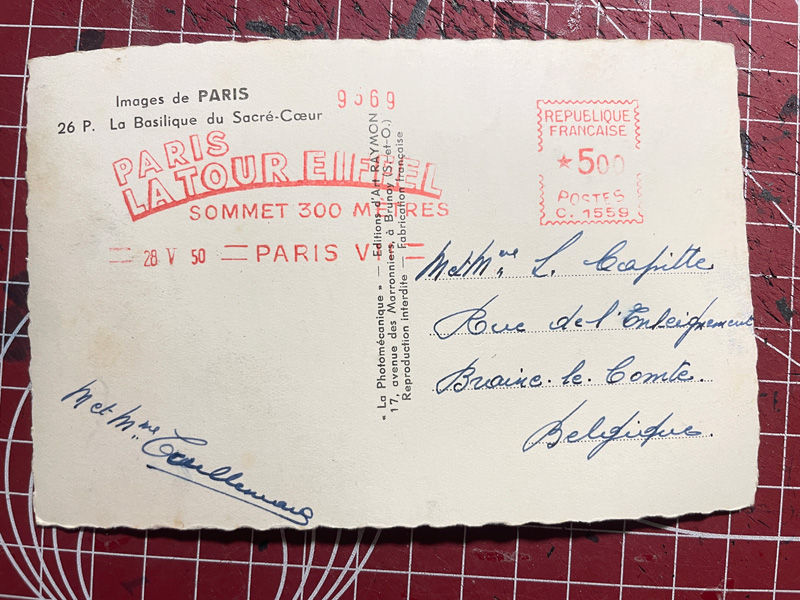 Images de PARIS
26 P. La Basilique du Sacré-Cœur
9369
PARIS
LA TOUR EIFFEL
SOMMET 300 METRES
28 V 50 PARIS V
REPUBLIQUE
FRANCAISE
★500
POSTES
C. 1559
« La Photomécanique » — Editions d'Art RAYMON
17, avenue des Marronniers, à Brunoy (S.-et-O.)
Reproduction interdite — Fabrication française
M et Mme L. Capitte
Rue de l'Enseignement
Braine-le-Comte.
Belgique.
M et Mme